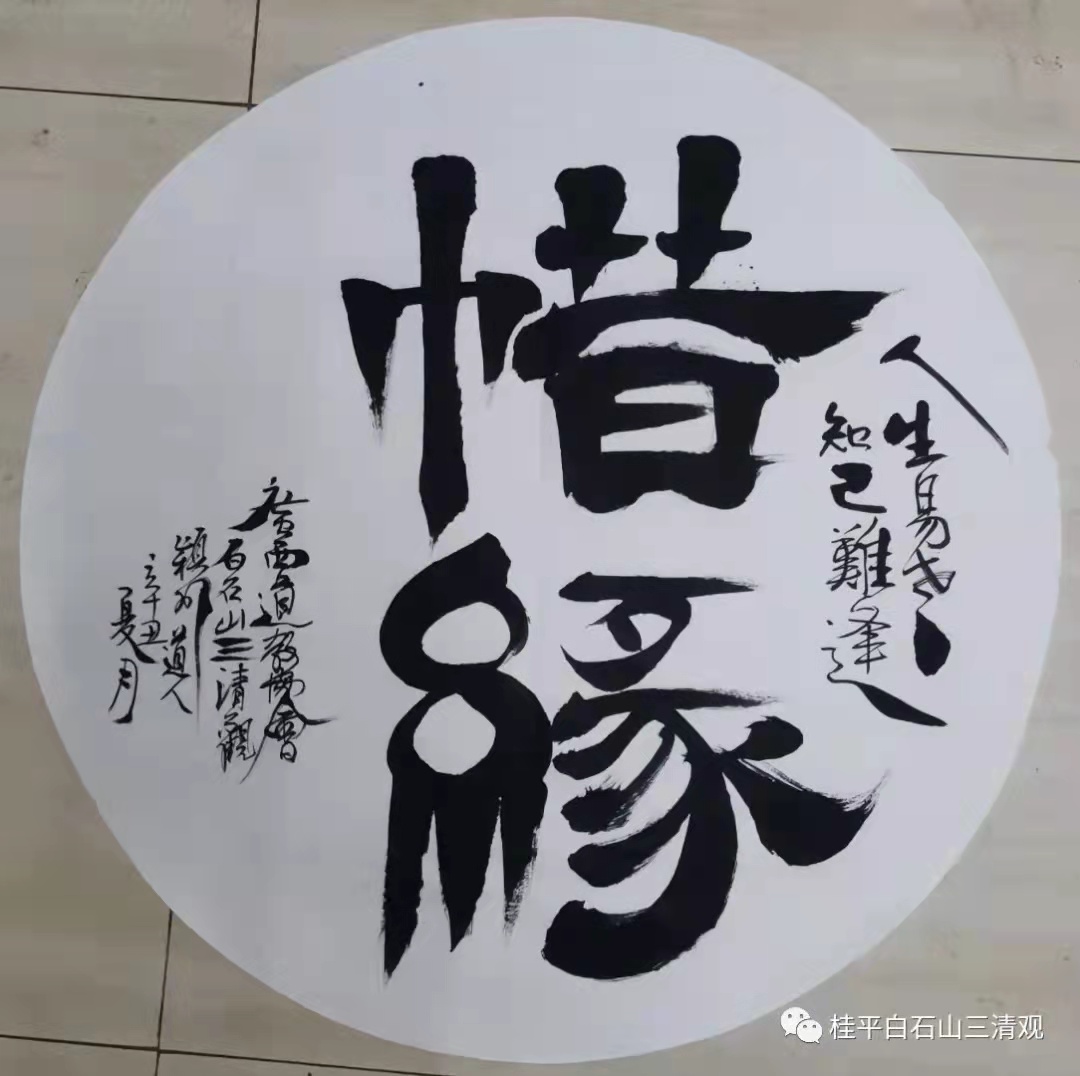 人生易老
知己難逢
惜緣
廣西道教協會
白石山三清觀
道人
辛丑夏月
桂平白石山三清观